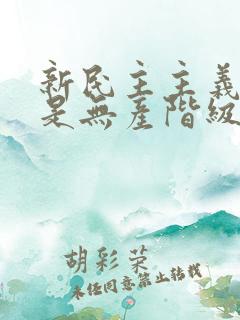 新民主主義
是無產階級
胡彩荣
未经同意禁止转载